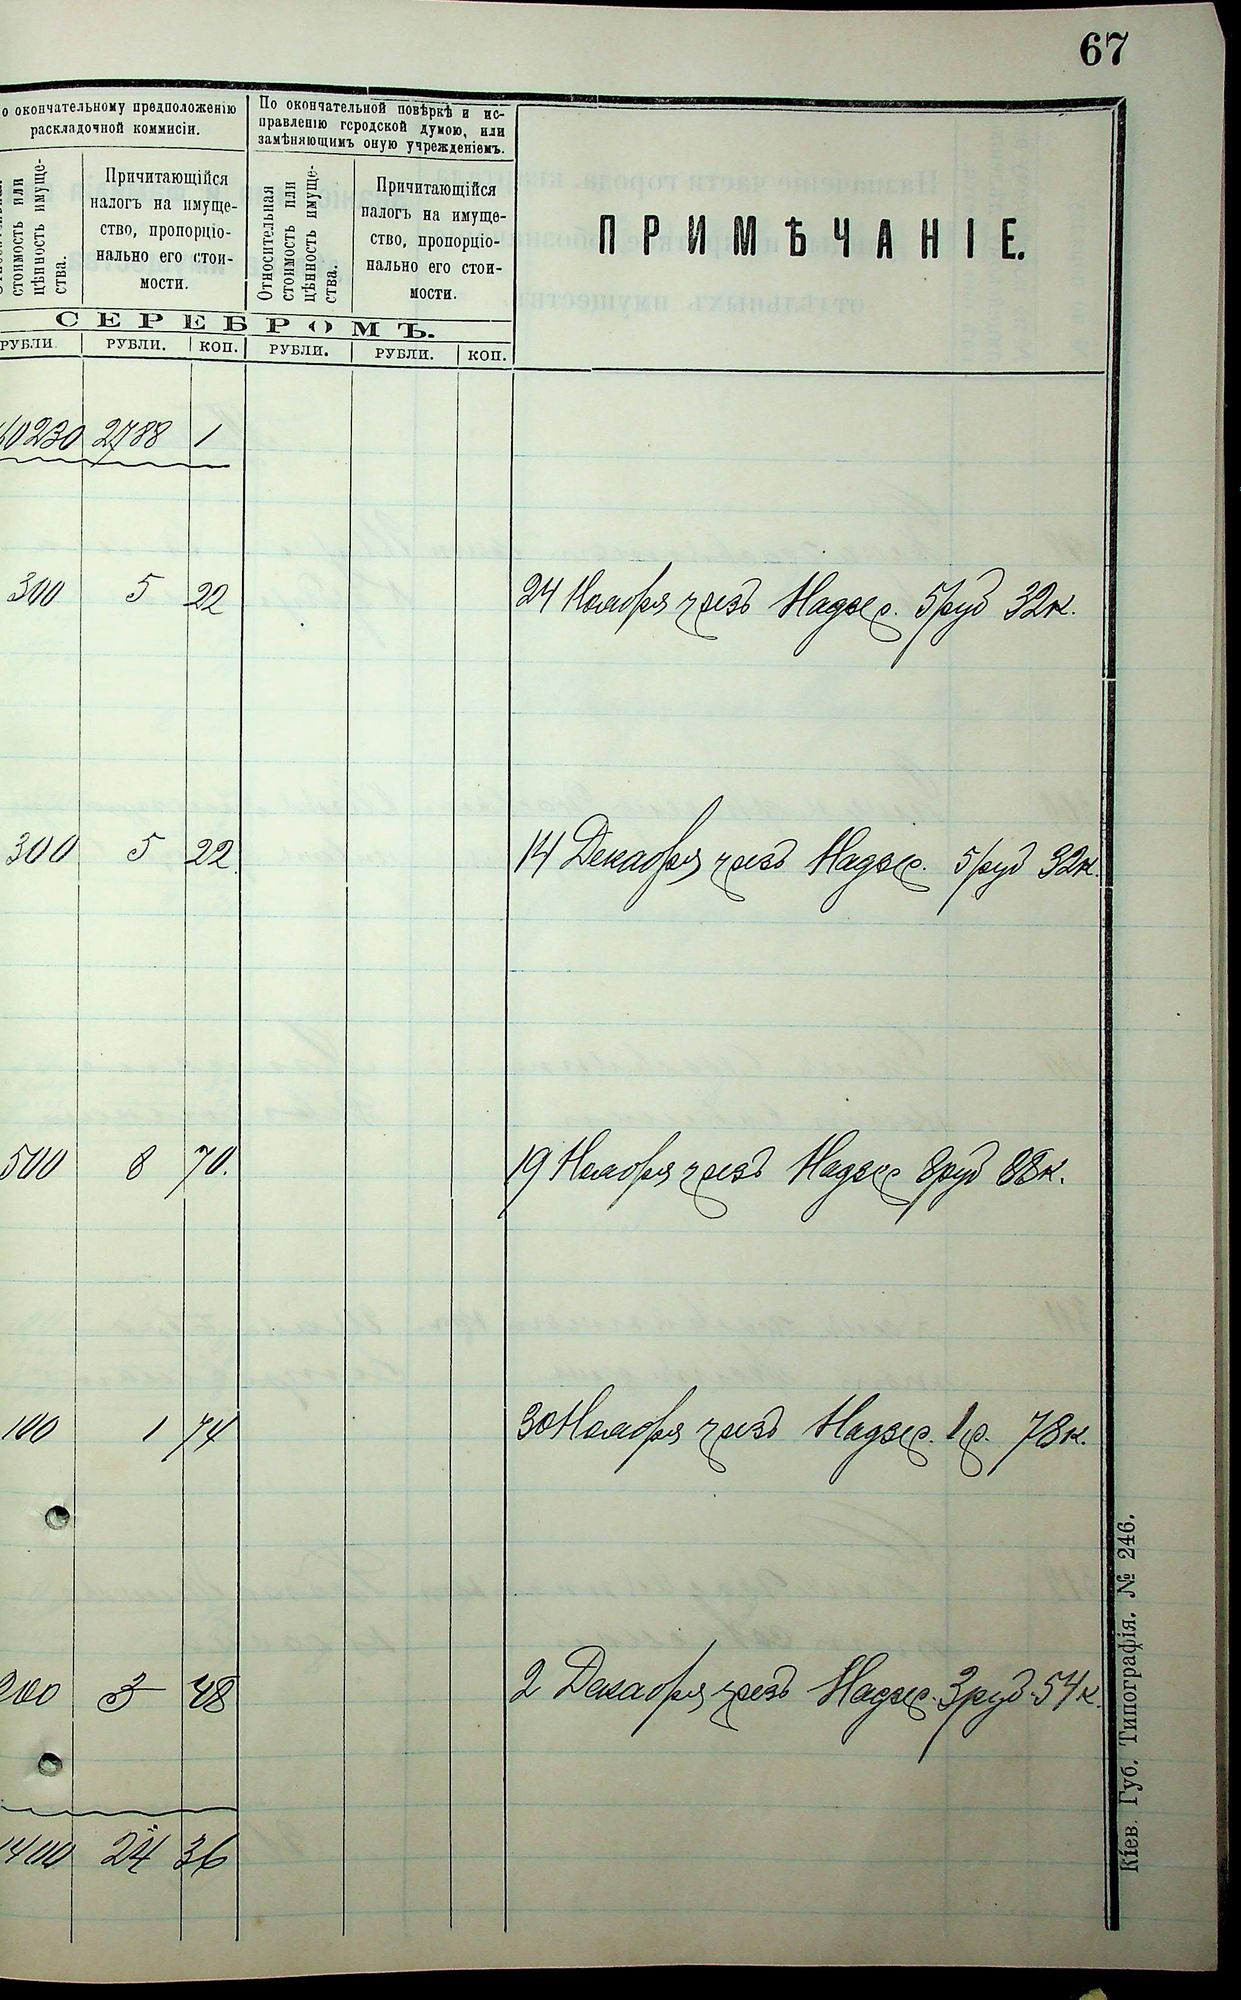 67
о окончательному предположенію
раскладочной коммисіи.
По окончательной повѣркѣ и ис-
правленію городской думою, или
замѣняющимъ оную учрежденіемъ.
стоимость или
цѣнность имуще-
ства.
Причитающійся
налогъ на имуще-
ство, пропорціо-
нально его стои-
мости.
Относительная
стоимость или
цѣнность имуще-
ства.
Причитающійся
налогъ на имуще-
ство, пропорціо-
нально его стои-
мости.
ПРИМѢЧАНІЕ.
СЕРЕБРОМЪ.
РУБЛИ. РУБЛИ. КОП. РУБЛИ. РУБЛИ. КОП.
0230 2788 1
300 5 22 24 Ноября чрезъ Надзер. 5 руб 32 к.
300 5 22 14 Декабря чрезъ Надзер. 5 руб 32 к.
500 8 70. 19 Ноября чрезъ Надзер 8 руб 88 к.
100 1 74 30 Ноября чрезъ Надзер. 1 р. 78 к.
200 3 48 2 Декабря чрезъ Надзер. 3 руб. 54 к.
1400 24 36
Кіев. Губ. Типографія. № 246.